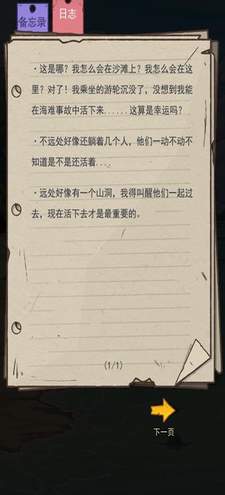 备忘录
日志
·这是哪？我怎么会在沙滩上？我怎么会在这
里？对了！我乘坐的游轮沉没了，没想到我能
在海难事故中活下来......这算是幸运吗？
·不远处好像还躺着几个人，他们一动不动不
知道是不是还活着...
·远处好像有一个山洞，我得叫醒他们一起过
去，现在活下去才是最重要的。
(1/1)
下一页